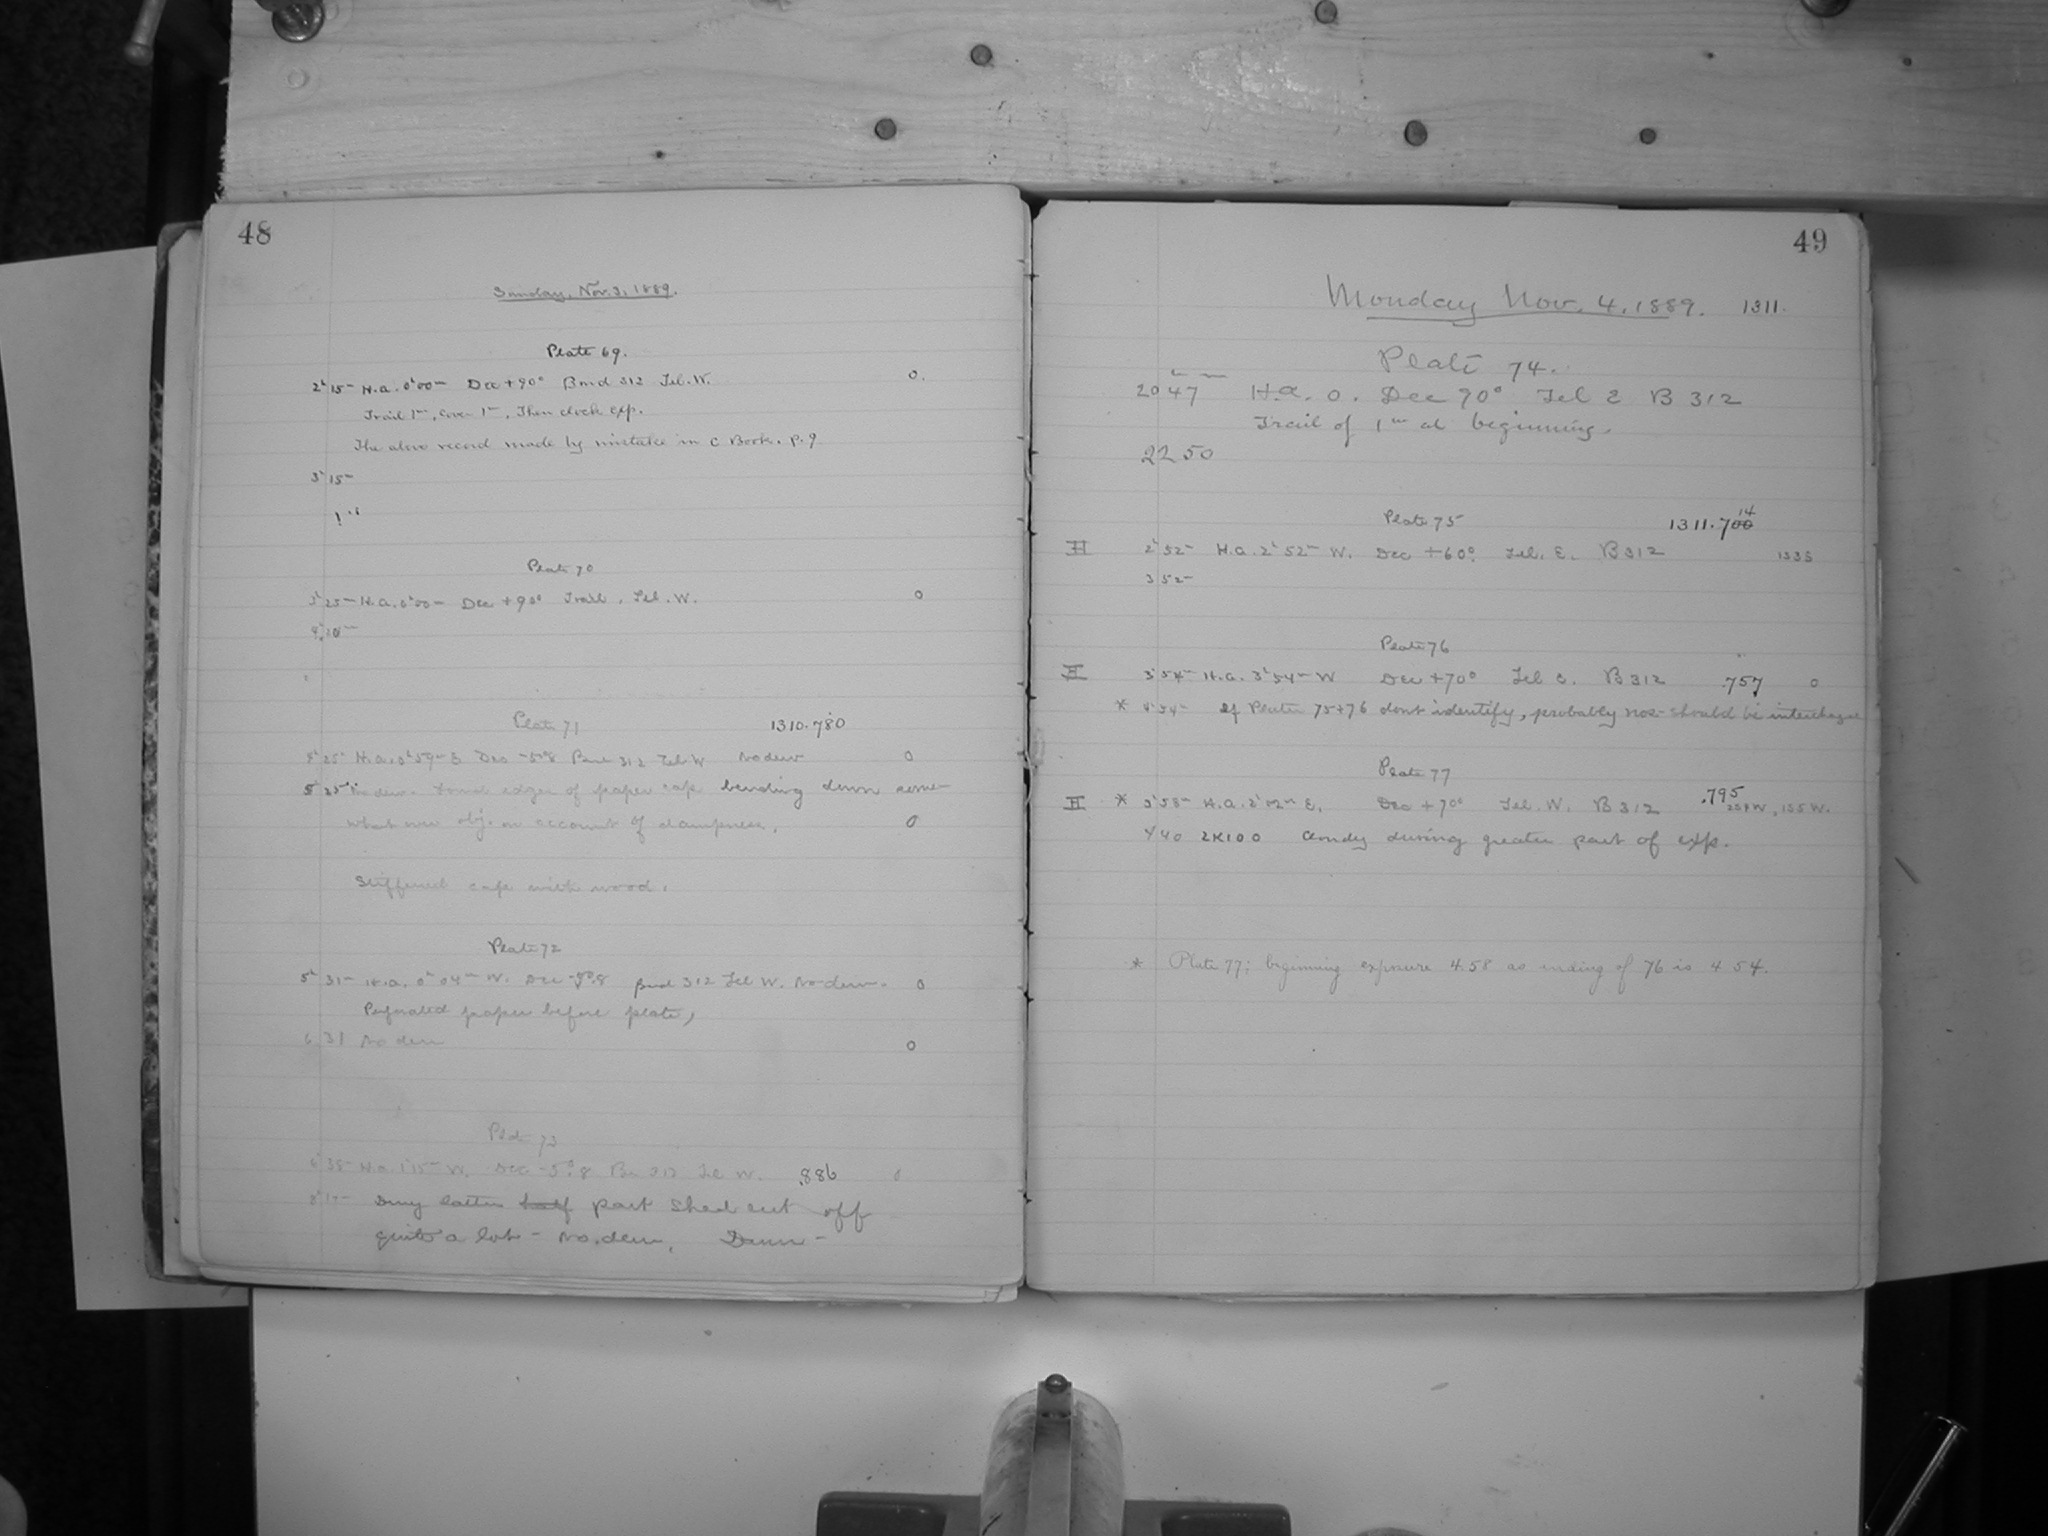 48
Sunday, Nov. 3, 1889.
Plate 69.
2h 15m H.a. 0h 00m Dec +90° Bnd 312 Tel. W. 0.
Trail 1m, Cover 1m, Then clock exp.
The above record made by mistake in C Book. p. 9
3h 15m
Plate 70
3h 25m H.a. 0h 00m Dec +90° Trail. Tel. W. 0
Plate 71 1310.780
H.a. 0h 59m E Dec -5°8 Bnd 312 Tel W No dew 0
5h 25m No dew. Found edges of paper cap bending down some-
what over obj. on account of dampness. 0
Stiffened cap with wood.
Plate 72
5h 31m H.a. 0h 04m W. Dec -5°8 Bnd 312 Tel W. No dew. 0
Perforated paper before plate,
6 31 No dew 0
Plate 73
6h 38m H.a. 1h 15m W. Dec -5°8 Bn 312 Tel W. .886 0
Dmg latter half part Shed cut off
quite a lot - No dew. Dawn -
49
Monday Nov. 4. 1889. 1311.
Plate 74.
20h 47m H.a. 0. Dec 90° Tel E B 312
Trail of 1m at beginning.
22 50
Plate 75 1311.700 14
II 2h 52m H.a. 2h 52m W. Dec +60° Tel. E. B 312 1335
3 52m
Plate 76
II 3h 54m H.a. 3h 54m W Dec +70° Tel E. B 312 .757 0
* 4 54m If Plates 75+76 dont identify, probably nos. should be interchange
Plate 77
II * 3h 58m H.a. 2h 02m E. Dec +70° Tel. W. B 312 .795
4 40 2X100 Cloudy during greater part of exp.
* Plate 77; beginning exposure 4.58 as ending of 76 is 4 54.